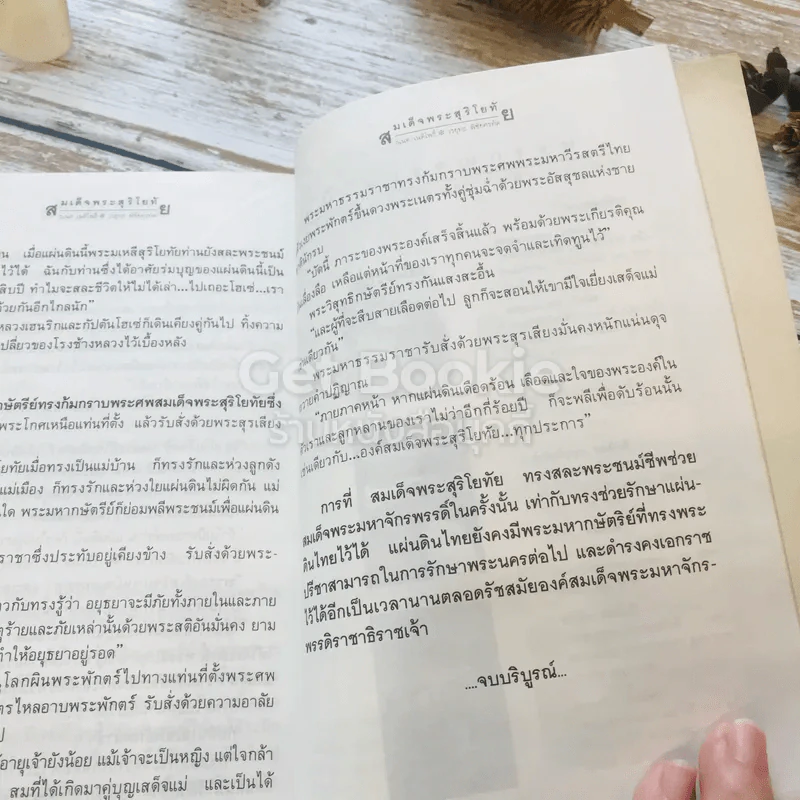 สมเด็จพระสุริโยทัย
น เมื่อแผ่นดินนี้พระมเหสีสุริโยทัยท่านยังสละพระชนม์
ไว้ได้ ฉันกับท่านซึ่งได้อาศัยร่มบุญของแผ่นดินนี้เป็น
สิบปี ทำไมจะสละชีวิตให้ไม่ได้เล่า...ไปเถอะโฮเซ่...เรา
ด้วยกันอีกไกลนัก"
หลวงเฮนริกและกัปตันโฮเซ่ก็เดินเคียงคู่กันไป ทิ้งความ
เปลี่ยวของโรงช้างหลวงไว้เบื้องหลัง
กษัตรีย์ทรงก้มกราบพระศพสมเด็จพระสุริโยทัยซึ่ง
พระโกศเหนือแท่นที่ตั้ง แล้วรับสั่งด้วยพระสุรเสียง
ทัยเมื่อทรงเป็นแม่บ้าน ก็ทรงรักและห่วงลูกดัง
แม่เมือง ก็ทรงรักและห่วงใยแผ่นดินไม่ผิดกัน แม่
ใด พระมหากษัตรีย์ก็ย่อมพลีพระชนม์เพื่อแผ่นดิน
ราชาซึ่งประทับอยู่เคียงข้าง รับสั่งด้วยพระ-
าวกับทรงรู้ว่า อยุธยาจะมีภัยทั้งภายในและภาย
ตุร้ายและภัยเหล่านั้นด้วยพระสติอันมั่นคง ยาม
ทำให้อยุธยาอยู่รอด"
โลกผินพระพักตร์ไปทางแท่นที่ตั้งพระศพ
ตรไหลอาบพระพักตร์ รับสั่งด้วยความอาลัย
ป
อายุเจ้ายังน้อย แม้เจ้าจะเป็นหญิง แต่ใจกล้า
สมที่ได้เกิดมาคู่บุญเสด็จแม่ และเป็นได้
สมเด็จพระสุริโยทัย
พระมหาธรรมราชาทรงก้มกราบพระศพพระมหาวีรสตรีไทย
พระพักตร์ขึ้นดวงพระเนตรทั้งคู่ชุ่มฉ่ำด้วยพระอัสสุชลแห่งชาย
นักรบ
"บัดนี้ ภาระของพระองค์เสร็จสิ้นแล้ว พร้อมด้วยพระเกียรติคุณ
เลื่องลือ เหลือแต่หน้าที่ของเราทุกคนจะจดจำและเทิดทูนไว้"
พระวิสุทธิกษัตรีย์ทรงกันแสงสะอื้น
"และผู้ที่จะสืบสายเลือดต่อไป ลูกก็จะสอนให้เขามีใจเยี่ยงเสด็จแม่
เดียวกัน"
พระมหาธรรมราชารับสั่งด้วยพระสุรเสียงมั่นคงหนักแน่นดุจ
ถวายคำปฏิญาณ
"ภายภาคหน้า หากแผ่นดินเดือดร้อน เลือดและใจของพระองค์ใน
ตัวเราและลูกหลานของเราไม่ว่าอีกกี่ร้อยปี ก็จะพลีเพื่อดับร้อนนั้น
เช่นเดียวกับ...องค์สมเด็จพระสุริโยทัย...ทุกประการ"
การที่ สมเด็จพระสุริโยทัย ทรงสละพระชนม์ชีพช่วย
สมเด็จพระมหาจักรพรรดิ์ในครั้งนั้น เท่ากับทรงช่วยรักษาแผ่น-
ดินไทยไว้ได้ แผ่นดินไทยยังคงมีพระมหากษัตริย์ที่ทรงพระ
ปรีชาสามารถในการรักษาพระนครต่อไป และดำรงคงเอกราช
ไว้ได้อีกเป็นเวลานานตลอดรัชสมัยองค์สมเด็จพระมหาจักร-
พรรดิราชาธิราชเจ้า
....จบบริบูรณ์...
Get Bookie
ร้านหนังสือลุงดี